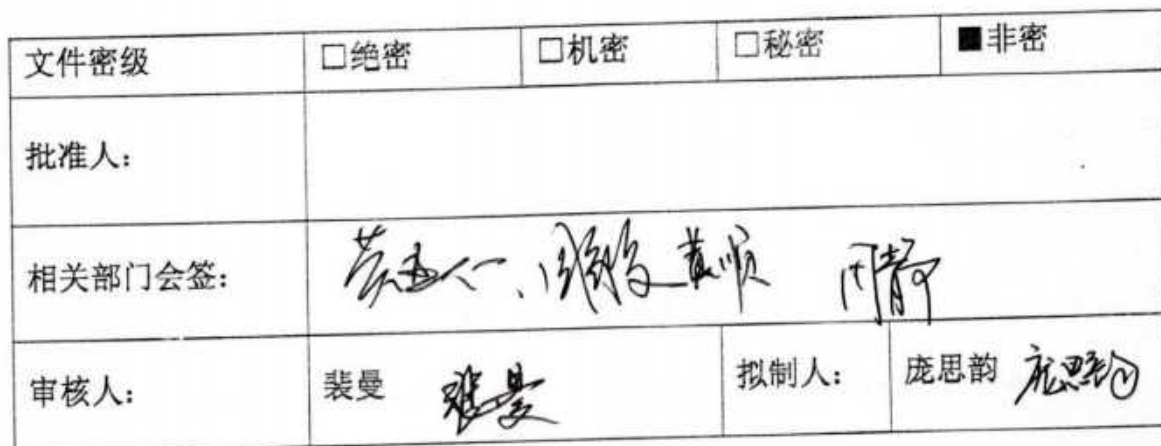 文件密级 □绝密 □机密 □秘密 ■非密
批准人：
相关部门会签： 黄顺 周静
审核人： 裴曼 裴曼 拟制人： 庞思韵 庞思韵